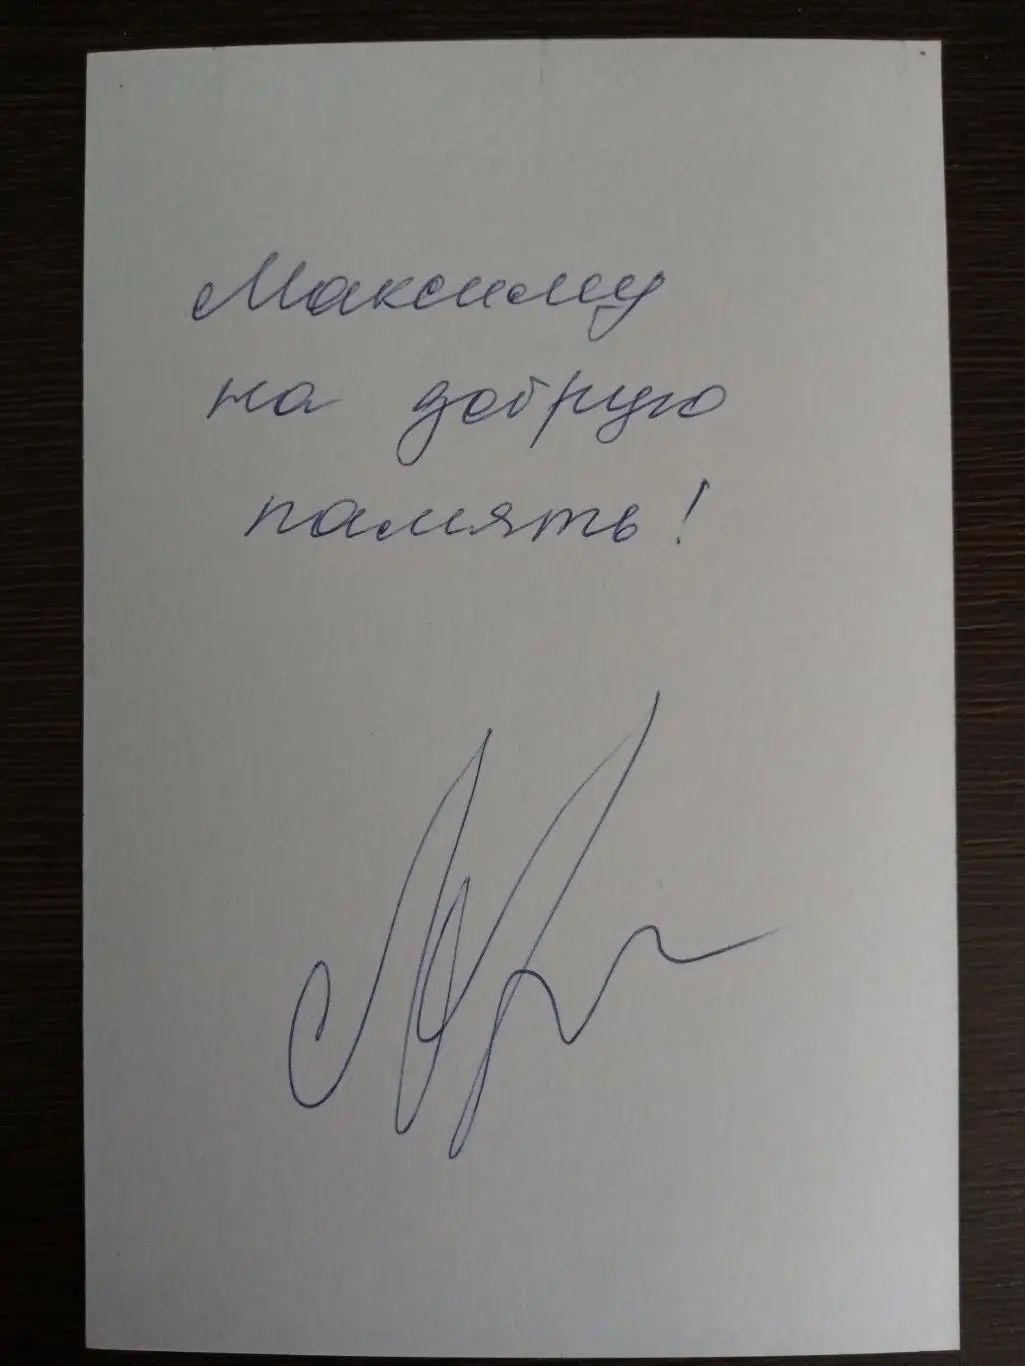 Максиму
на добрую
память!